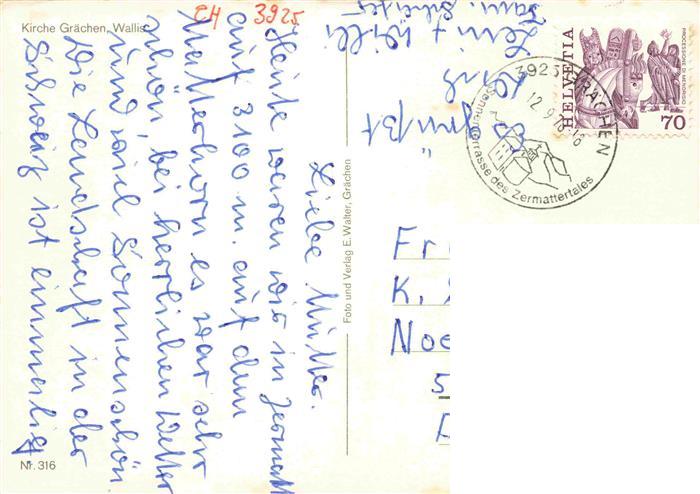 CH 3925
Kirche Grächen, Wallis
Liebe Mutter.
Heute waren wir in Zermatt
auf 3100 m. auf dem
Matterhorn es war sehr
schön, bei herrlichen Wetter
und viel Sonnenschön
Die Landschaft in der
Schweiz ist einmalig
Es grüßt
Leni + Willi
Foto und Verlag E. Walter, Grächen
Nr. 316
HELVETIA
70
3925 GRÄCHEN
12.9.
Sonnenterrasse des Zermattertales
Fr
K.
Noe
5